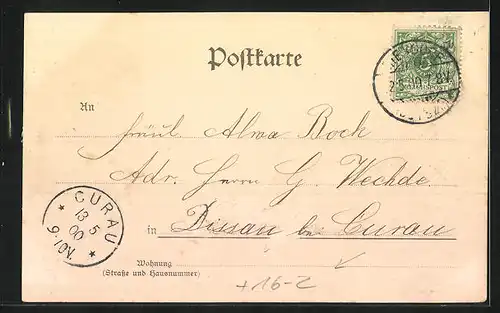 Postkarte
An
Fräul. Alma Bock
Adr. Herrn G. Wechde.
in Dissau bei Curau
Wohnung
(Straße und Hausnummer)
CURAU
13 5
00
9-10V.
+ 16-2